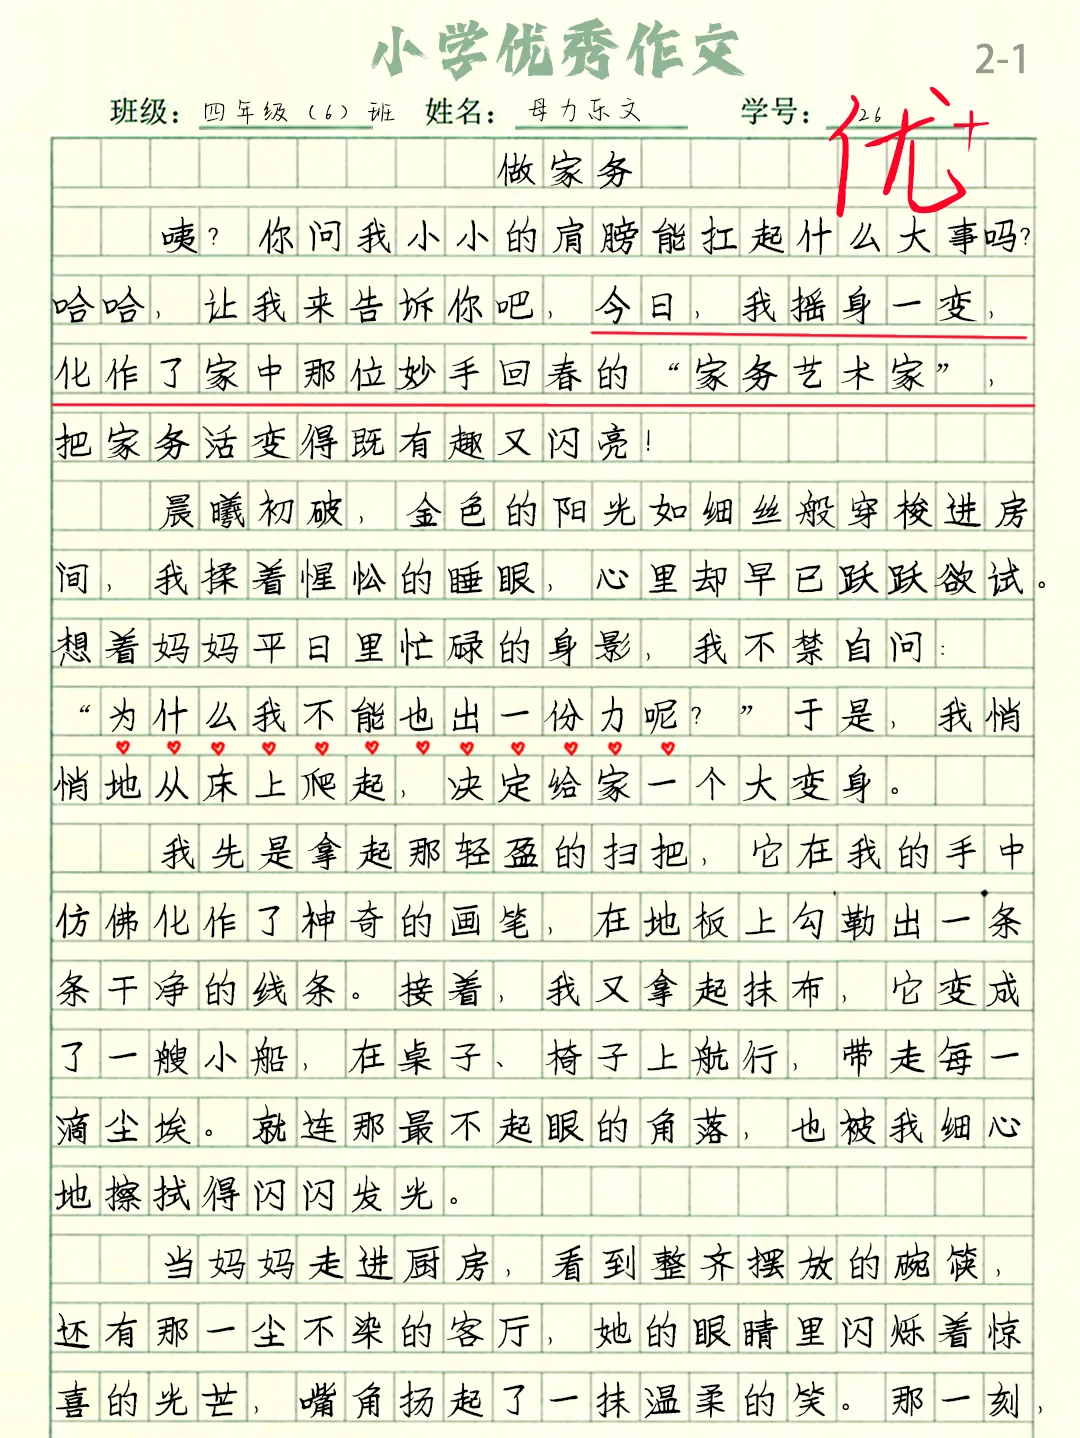 小学优秀作文
2-1
班级：四年级（6）班 姓名：母力乐文 学号：26
优+
做家务
咦？你问我小小的肩膀能扛起什么大事吗？
哈哈，让我来告诉你吧，今日，我摇身一变，
化作了家中那位妙手回春的“家务艺术家”，
把家务活变得既有趣又闪亮！
晨曦初破，金色的阳光如细丝般穿梭进房
间，我揉着惺忪的睡眼，心里却早已跃跃欲试。
想着妈妈平日里忙碌的身影，我不禁自问：
“为什么我不能也出一份力呢？”于是，我悄
悄地从床上爬起，决定给家一个大变身。
我先是拿起那轻盈的扫把，它在我的手中
仿佛化作了神奇的画笔，在地板上勾勒出一条
条干净的线条。接着，我又拿起抹布，它变成
了一艘小船，在桌子、椅子上航行，带走每一
滴尘埃。就连那最不起眼的角落，也被我细心
地擦拭得闪闪发光。
当妈妈走进厨房，看到整齐摆放的碗筷，
还有那一尘不染的客厅，她的眼睛里闪烁着惊
喜的光芒，嘴角扬起了一抹温柔的笑。那一刻，